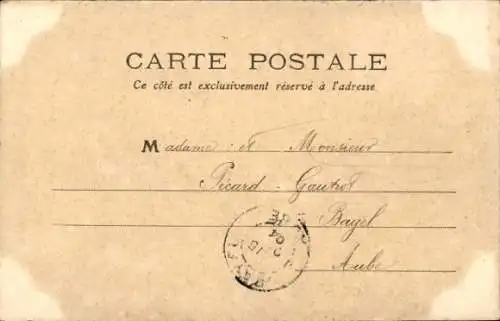 CARTE POSTALE
Ce côté est exclusivement réservé à l'adresse
Madame et Monsieur
Picard - Gautrot
Bagel
Aube
04